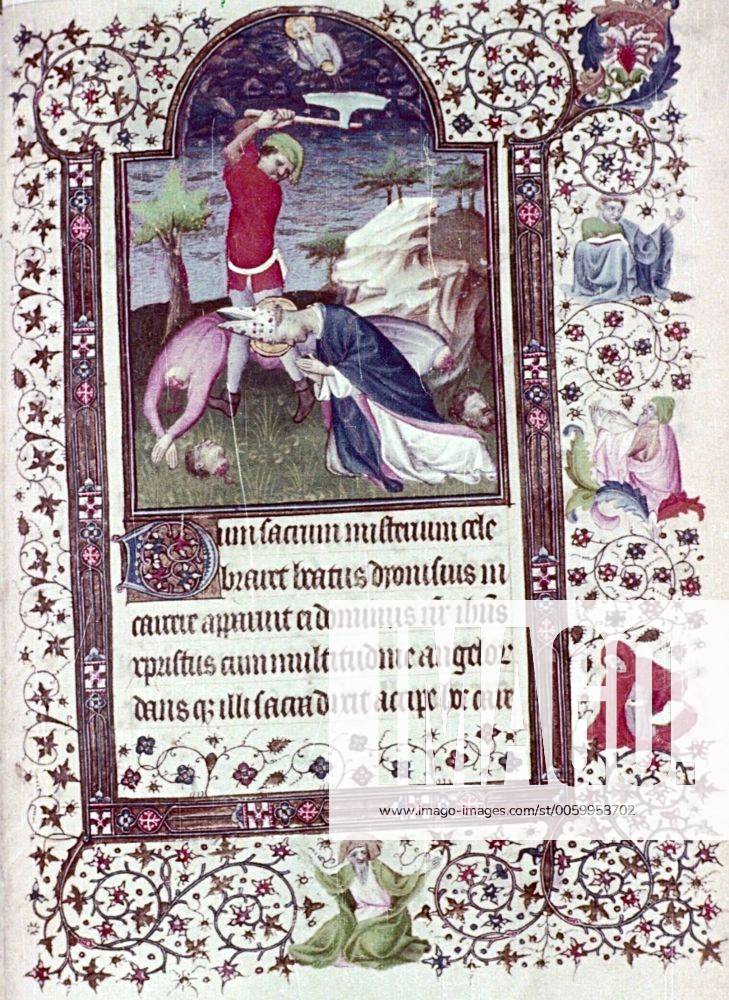 Dum sacrum misterium cele
braret beatus dyonisius in
carcere aparuit ei dominus nr ihus
xpristus cum multitudine angelor
dans qz illi sacra dixit accipe hoc care
IMAGO
www.imago-images.com/st/0059953702